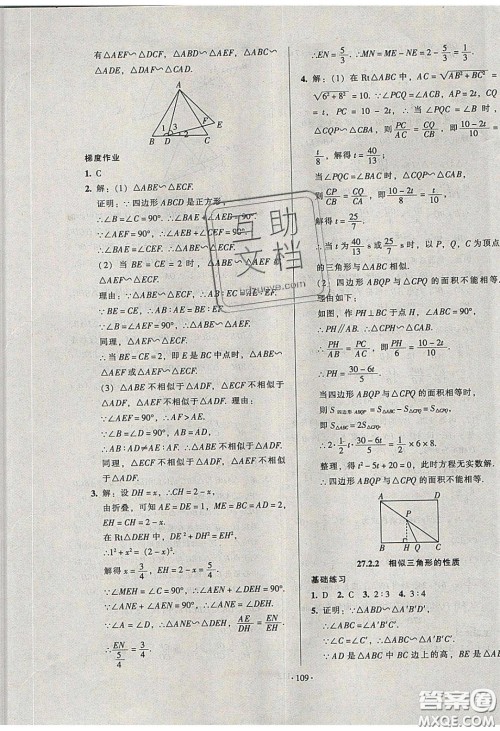 有△AEF∽△DCF，△ABD∽△AEF，△ABC∽
△ADE，△DAF∽△CAD.
A
1 3 2
F
E
B D C
梯度作业
1. C
2. 解：(1) △ABE∽△ECF.
证明：∵四边形 ABCD 是正方形，
∴∠B＝∠C＝90°，∴∠BAE＋∠AEB＝90°.
∵∠AEF＝90°，∴∠AEB＋∠CEF＝90°，
∴∠BAE＝∠CEF. ∴△ABE∽△ECF.
(2) 当 BE＝CE 时，△ABE∽△AEF
理由：∵△ABE∽△ECF，∴AB∶EC＝AE∶EF.
∵BE＝CE，∴AB∶AE＝BE∶EF.
同理，△AEF∽△ECF，
∴当 BE＝CE，即 E 是 BC 中点时，△ABE∽
△AEF.
(3) △ABE 不相似于△ADF，△AEF 不相似
于△ADF，△ECF 不相似于△ADF. 理由：
∵∠AEF＝90°，∴AF＞AE.
∵∠B＝∠D＝90°，AB＝AD，
∴AB∶AD≠AE∶AF. ∴△ABE 不相似于△ADF.
同理，△ECF 不相似于△ADF，△AEF 不相
似于△ADF.
3. 解：设 DH＝x，∴CH＝2－x，
由折叠，可知 DH＝EH，ME＝BC＝AD＝2，
EH＋CH＝2－x.
在 Rt△DEH 中，∵DE²＋DH²＝EH²，
∴1²＋x²＝(2－x)².
解得 x＝3/4，EH＝2－x＝5/4.
∵∠MEH＝∠HEC＝90°，∴∠AEN＋∠HED＝90°.
∵∠ANE＋∠AEN＝90°，∴∠ANE＝∠HED.
又∵∠A＝∠D，∴△ANE∽△DEH，AE/DH＝EN/EH.
∴EN/(5/4)＝1/(3/4).
∴EN＝5/3. ∴MN＝ME－NE＝2－5/3＝1/3.
4. 解：(1) 在 Rt△ABC 中，AC＝√(AB²＋BC²)＝
√(6²＋8²)＝10. ∵∠PCQ＝∠ACB，AP＝2t，CQ
＝t，PC＝10－2t，∴当∠PQC＝∠B 时，
△CPQ∽△CAB，∴PC/AC＝CQ/CB，即 (10－2t)/10＝
t/8，解得 t＝40/13；
当∠PQC＝∠BAC 时，△PCQ∽△BCA，则
CP/CB＝CQ/CA，即 (10－2t)/8＝t/10，
解得 t＝25/7.
∴当 t 为 40/13 s 或 25/7 s 时，以 P，Q，C 为顶点
的三角形与△ABC 相似.
(2) 四边形 ABQP 与△CPQ 的面积不能相等.
理由如下：
如图，作 PH⊥BC 于点 H，
∴PH∥AB. ∴△CPH∽△CAB.
∴PH/AB＝PC/AC，即 PH/6＝(10－2t)/10.
∴PH＝(30－6t)/5.
当四边形 ABQP 与△CPQ 的面积相等时，
则 S四边形ABQP＝S△ABC－S△CPQ＝S△CPQ，
∴2·1/2 t·(30－6t)/5＝1/2×6×8.
整理，得 t²－5t＋20＝0，此时方程无实数解.
∴四边形 ABQP 与△CPQ 的面积不能相等.
A D
P
B H Q C
27.2.2 相似三角形的性质
基础练习
1. D 2. C 3. 2∶3 4. 3∶4
5. 证明：∵△ABC∽△A′B′C′，
∴∠C＝∠C′，∴△ABC∽△A′B′C′.
∵AD 是△ABC 中 BC 边上的高，BE 是△ABC
· 109 ·
互助文档
答案圈
MXQE.COM